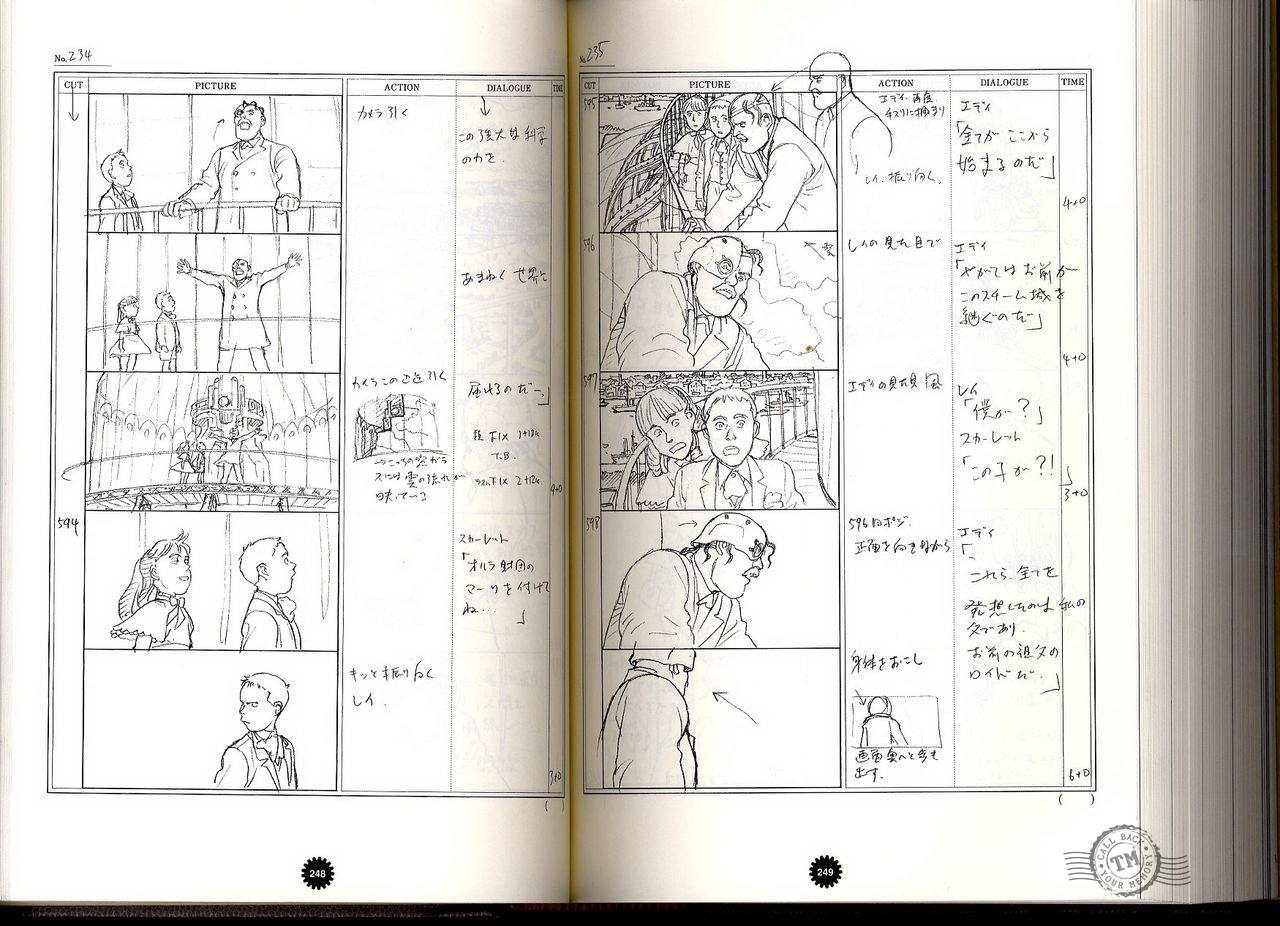 No. 234
CUT
PICTURE
ACTION
DIALOGUE
TIME
カメラ引く
この強大な科学
の力を
あまねく世界に
カメラこのまま引く
届けるのだーっ」
T.B.
→こっちの窓がラ
スには雲の流れが
映っている
4+0
594
スカーレット
「オハラ財団の
マークを付けて
ね…」
キッと振り向く
レイ
3+0
( )
248
No. 235
CUT
PICTURE
ACTION
DIALOGUE
TIME
595
エディ、再度
手スリに掴まり
レイ、振り向く。
エディ
「全てが ここから
始まるのだ」
4+0
596
雲
レイの見た目で
エディ
「やがては お前が
このスチーム城を
継ぐのだ」
4+0
597
エディの見た目風
レイ
「僕が?」
スカーレット
「この子が?!」
3+0
598
596同ポジ
正面を向きながら
エディ
「
これら、全てを
発想したのは 私の
父であり、
お前の祖父の
ロイドだ。」
身体をおこし
画面奥へと歩き
出す。
6+0
( )
249
CALL BACK
TM
YOUR MEMORY